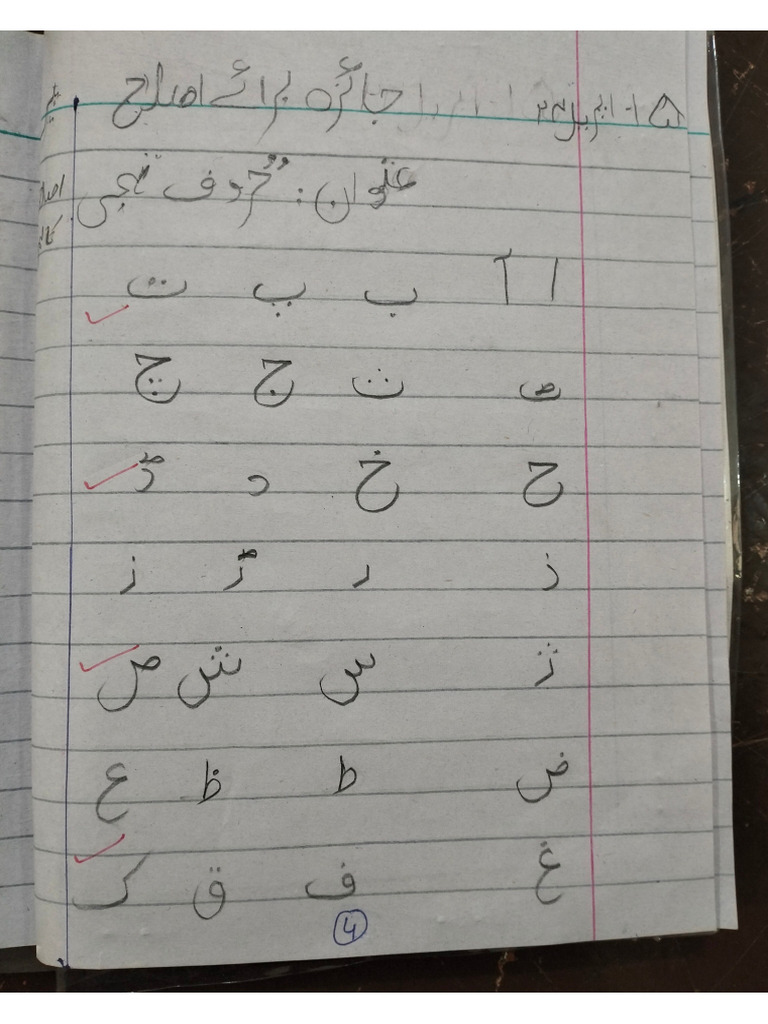 جائزہ برائے اصلاح
عنوان: حروف تہجی
ا آ ب پ ت
ٹ ث ج چ
ح خ د ڈ
ذ ر ڑ ز
ژ س ش ص
ض ط ظ ع
غ ف ق ک
4